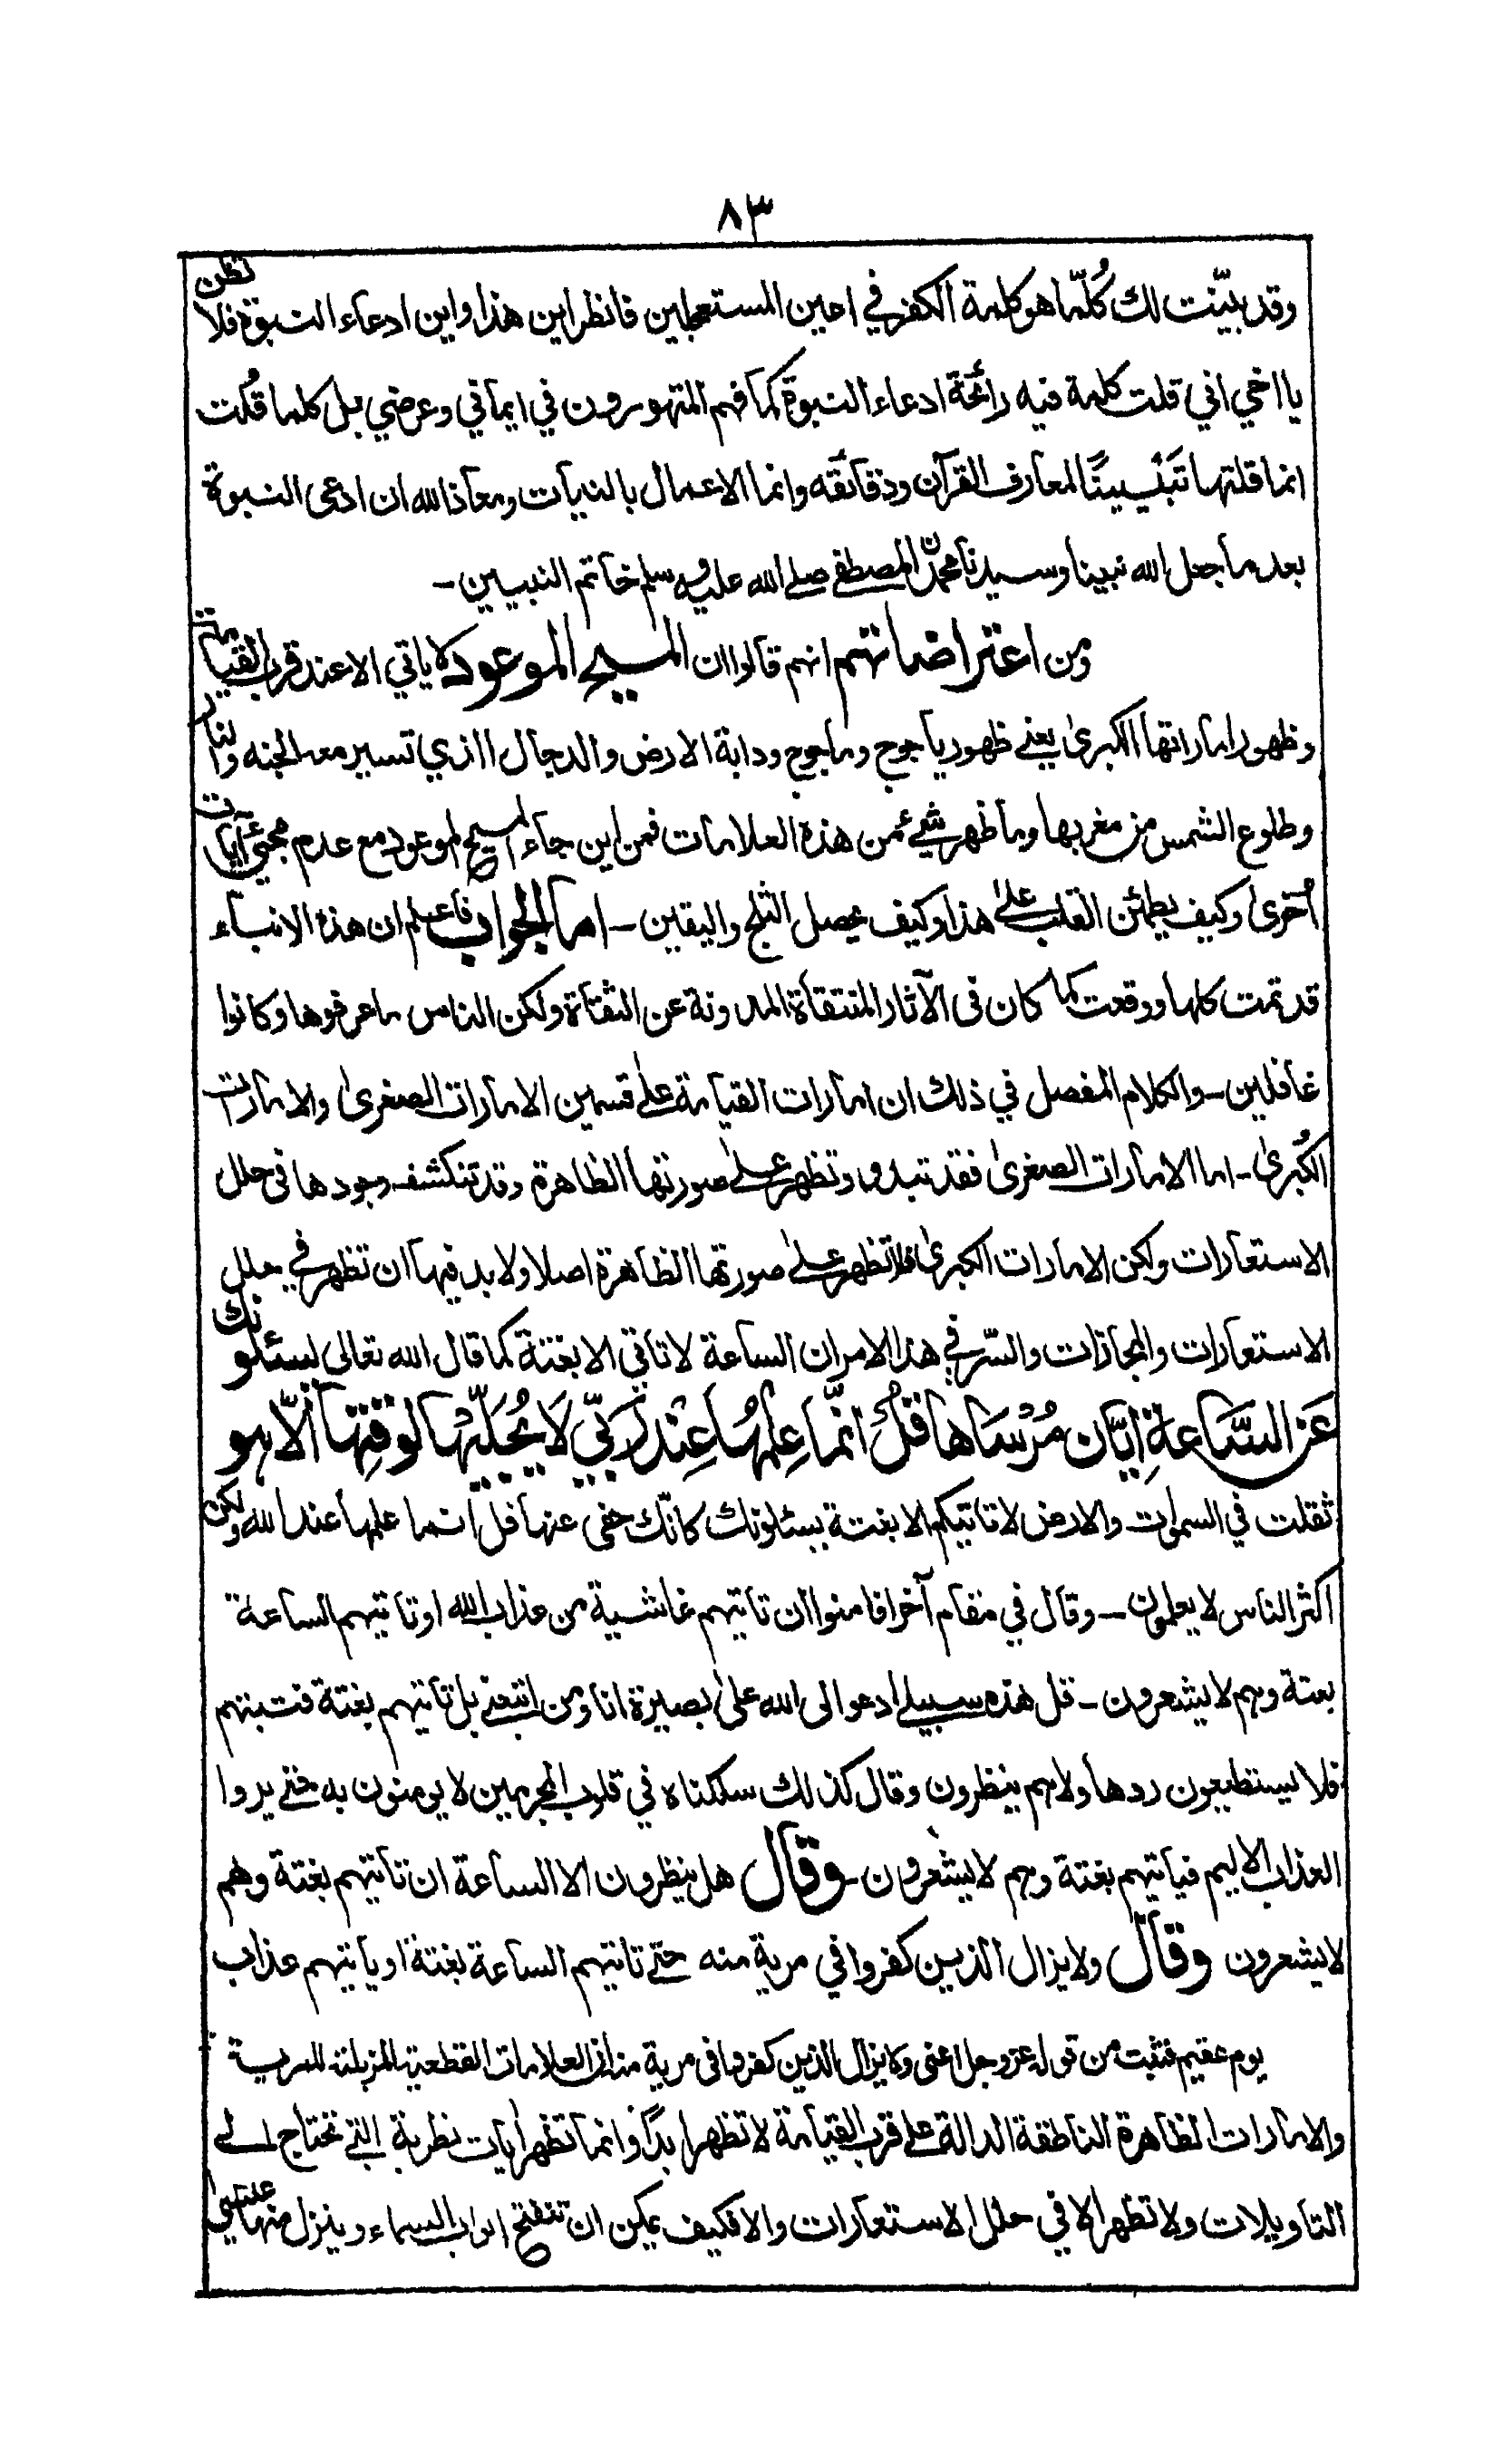 ٨٣
وقد بيّنت لك كُلّما هو كلمة الكفر في اعين المستعجلين فانظر اين هذا واين ادعاء النبوة فلا تظن
يا اخي اني قلت كلمة فيه رائحة ادعاء النبوة كما فهم المتهورون في ايماني وعرضي بل كلما قُلت
انما قلتها تَبْيينًا لمعارف القرآن ودقائقه وانما الاعمال بالنيات ومعاذ الله ان ادعى النبوة
بعد ما جعل الله نبينا وسيدنا محمدن المصطفى صلے الله عليه وسلم خاتم النبيين -
ومن اعتراضاتهم انهم قالوا ان المسيح الموعود لا ياتي الا عند قرب القيامة
وظهور اماراتها الكبرىٰ يعنے ظهور ياجوج وماجوج ودابة الارض والدجال الذي تسير معه الجنه والنار
وطلوع الشمس من مغربها وما ظهر شيءٌ من هذه العلامات فمن اين جاء المسيح الموعود مع عدم مجيئ آيات
اُخرىٰ وكيف يطمئن القلب علےٰ هذا وكيف يحصل الثلج واليقين - اما الجواب فاعلم ان هذه الانباء
قد تمت كلها ووقعت كما كان فى الآثار المنتقاة المدونة عن الثقاة ولكن الناس ما عرفوها وكانوا
غافلين - والكلام المفصل في ذلك ان امارات القيامة علےٰ قسمين الامارات الصغرىٰ والامارات
الكُبرىٰ - اما الامارات الصغرىٰ فقد تبدو وتظهر علےٰ صورتها الظاهرة وقد تنكشف وجودها فى حلل
الاستعارات ولكن الامارات الكبرىٰ فلا تظهر علےٰ صورتها الظاهرة اصلا ولا بد فيها ان تظهر في حلل
الاستعارات والمجازات والسّر في هذا الامر ان الساعة لا تاتي الا بغتة كما قال الله تعالى يسئلونك
عَنِ السَّاعَةِ ايّان مُرْسَاها قُلْ انّما عِلمُها عِنْد رَبّي لَا يُجَلّيْها لوَقتِها اِلّا هو
ثقلت في السمٰوات والارض لا تاتيكم الا بغتة يسئلونك كانّك حفى عنها قل انما علمها عند الله ولكن
اكثر الناس لا يعلمون - وقال في مقام آخر افامنوا ان تاتيهم غاشية من عذاب الله او تاتيهم الساعة
بغتة وهم لا يشعرون - قل هذه سبيلے ادعو الى الله علىٰ بصيرة انا ومن اتبعنے بل تاتيهم بغتة فتبهتهم
فلا يستطيعون ردها ولا هم ينظرون وقال كذلك سلكناه في قلوب المجرمين لا يومنون به حتےٰ يروا
العذاب الاليم فياتيهم بغتة وهم لا يشعرون - وقال هل ينظرون الا الساعة ان تاتيهم بغتة وهم
لا يشعرون وقال ولا يزال الذين كفروا في مرية منه حتےٰ تاتيهم الساعة بغتة او ياتيهم عذاب
يوم عقيم فثبت من قوله عزوجل اعنى ولا يزال الذين كفروا فى مرية منه ان العلامات القطعية المزيلة للمرية
والامارات الظاهرة الناطقة الدالة علےٰ قرب القيامة لا تظهر ابدًا وانما تظهر اٰيات نظرية التے تحتاج الے
التاويلات ولا تظهر الا في حلل الاستعارات والا فكيف يمكن ان تنفتح ابواب السماء وينزل منها عيسٰى